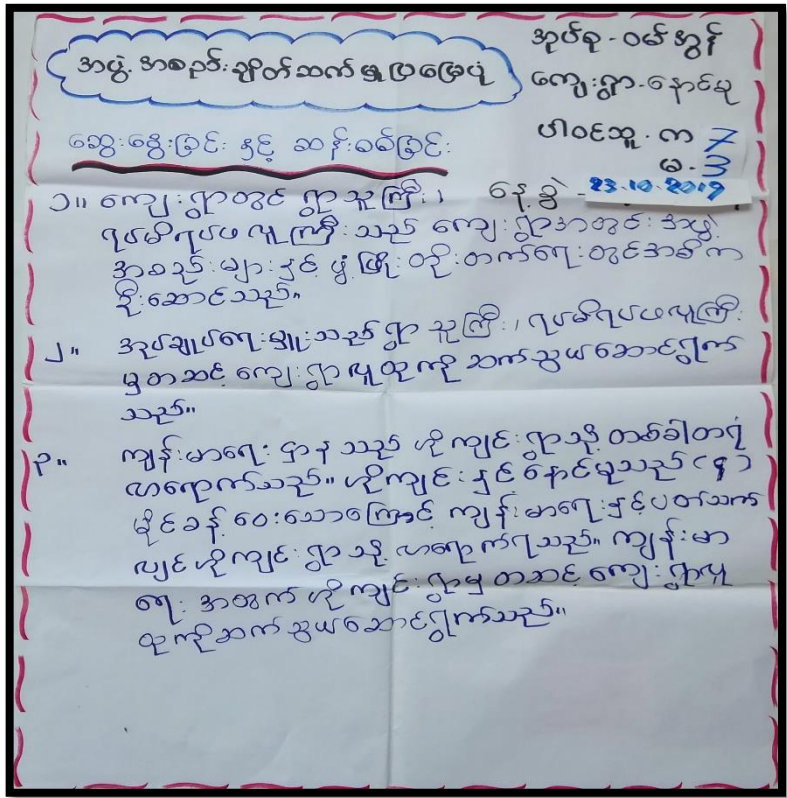 အုပ်စု - ဝမ်အွန်
အဖွဲ့အစည်းချိတ်ဆက်မှုပြမြေပုံ
ကျေးရွာ - နောင်မု
ပါဝင်သူ - က 7
မ - 3
ဆွေးနွေးခြင်း နှင့် ဆန်းစစ်ခြင်း
နေ့စွဲ - 23.10.2019
၁။ ကျေးရွာတွင် ရွာသူကြီး၊
ရပ်မိရပ်ဖလူကြီးသည် ကျေးရွာအတွင်းအဖွဲ့
အစည်းများနှင့် ဖွံ့ဖြိုးတိုးတက်ရေးတွင်အဓိက
ဦးဆောင်သည်။
၂။ အုပ်ချုပ်ရေးမှူးသည်ရွာသူကြီး၊ ရပ်မိရပ်ဖလူကြီး
မှတဆင့် ကျေးရွာလူထုကို ဆက်သွယ်ဆောင်ရွက်
သည်။
၃။ ကျန်းမာရေးဌာနသည် ဟိုကျင်းရွာသို့ တစ်ခါတရံ
လာရောက်သည်။ ဟိုကျင်းနှင့်နောင်မုသည် (၄)
မိုင်ခန့် ဝေးသောကြောင့် ကျန်းမာရေးနှင့်ပတ်သက်
လျှင်ဟိုကျင်းရွာသို့ လာရောက်ရသည်။ ကျန်းမာ
ရေးအတွက် ဟိုကျင်းရွာမှတဆင့် ကျေးရွာလူ
ထုကိုဆက်သွယ်ဆောင်ရွက်သည်။